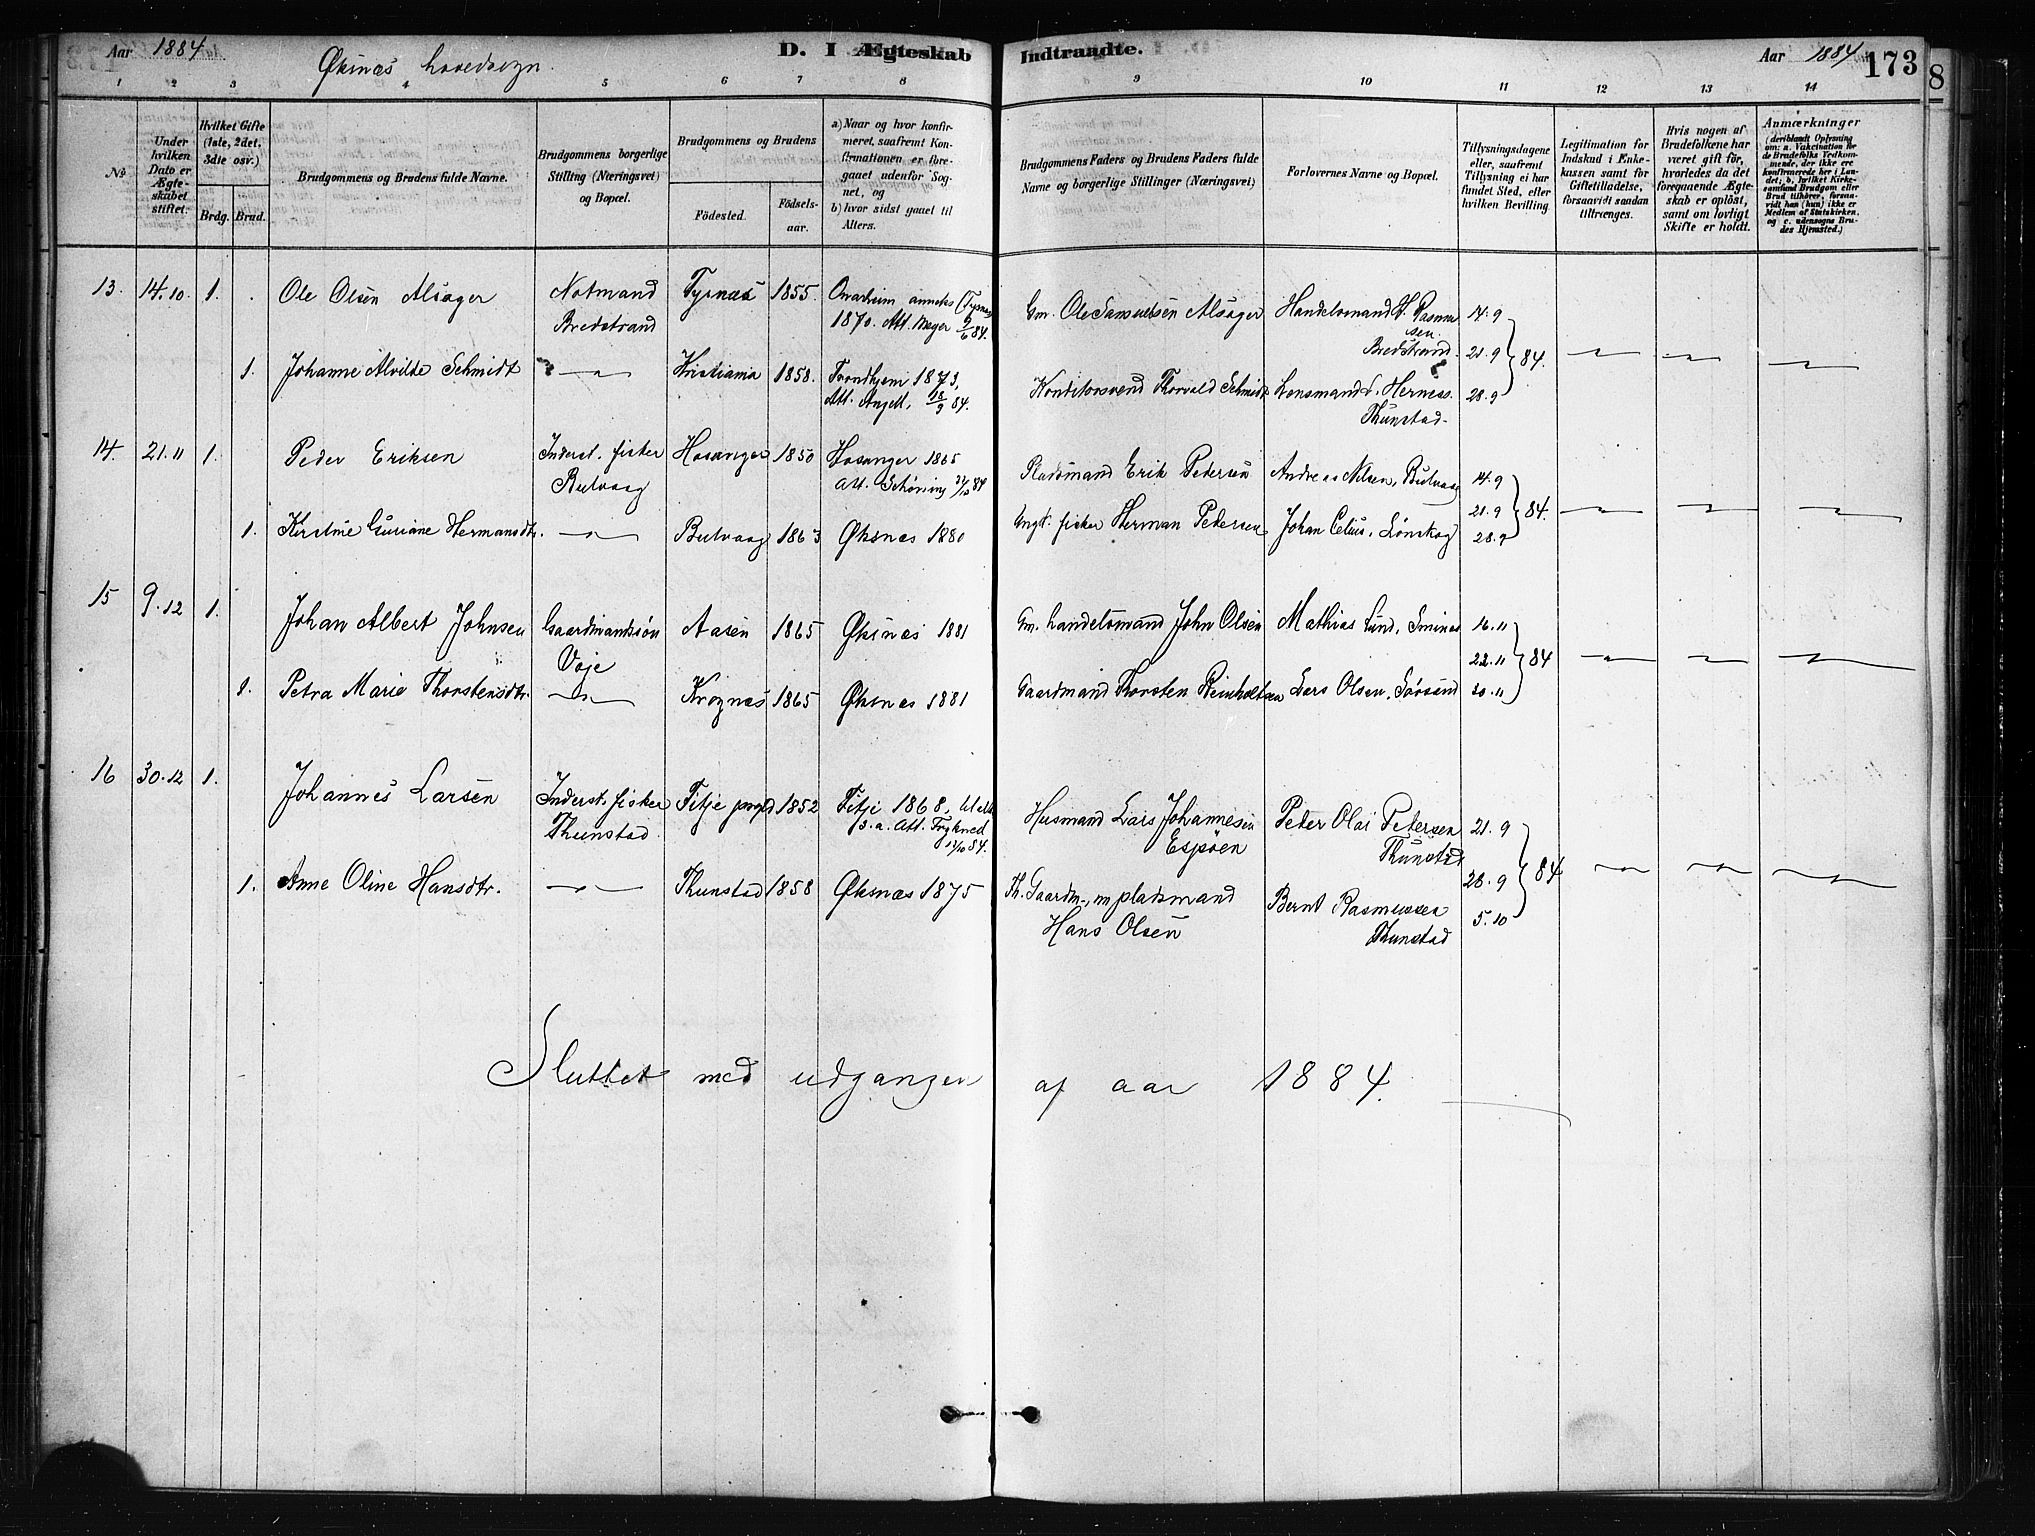 Aar 1884.
Øksnæs hovedsogn.
D. I Ægteskab Indtraadte.
Aar 1884
173
8
1 2 3 4 5 6 7 8 9 10 11 12 13 14
No
Under hvilken Dato er Ægteskabet stiftet.
Hvilket Gifte (1ste, 2det, 3die osv.)
Brdg. Brud.
Brudgommens og Brudens fulde Navne.
Brudgommens borgerlige Stilling (Næringsvei) og Bopæl.
Brudgommens og Brudens
Födested. Födselsaar.
a) Naar og hvor konfirmeret, saafremt Konfirmationen er foregaaet udenfor Sognet, og
b) hvor sidst gaaet til Alters.
Brudgommens Faders og Brudens Faders fulde Navne og borgerlige Stillinger (Næringsvei)
Forlovernes Navne og Bopæl.
Tillysningsdagene eller, saafremt Tillysning ei har fundet Sted, efter hvilken Bevilling
Legitimation for Indskud i Enkekassen samt for Giftetilladelse, forsaavidt saadan tiltrænges.
Hvis nogen af Brudefolkene har været gift för, hvorledes da det foregaaende Ægteskab er oplöst, samt om lovligt Skifte er holdt.
Anmærkninger
(deriblandt Oplysning om: a. Vakcination for de Brudefolks Vedkommende, der ikke ere konfirmerede her i Landet; b. hvilket Kirkesamfund Brudgom eller Brud tilhörer, forsaavidt han (hun) ikke er Medlem af Statskirken, og c. udensogns Brudes Hjemsted.)
13. 14.10 1. Ole Olsen Alsager Notmand Bredstrand Tysnæs 1855. Onarheim anneks (Tysnæs 1870. Att. Meyer 9/6 84. Gm. Ole Samuelsen Alsager Handelsmand H. Rasmussen. Bredstrand. 14.9
1. Johanne Alvilde Schmidt Kristiania 1858. Trondhjem 1873, Att. Angell, 18/9 84. Konditorsvend Thorvald Schmidt Lensmand L. Herness. Thunstad. 21.9 28.9 } 84.
14. 21.11 1. Peder Eriksen Inderst. fisker Bulvaag Hosanger 1850 Hosanger 1865 Att. Schöning 22/10 84 Pladsmand Erik Pedersen Andreas Nilsen, Bulvaag 14.9
1. Kirstine Guriane Hermansdtr. Bulvaag 1863 Øksnæs 1880 Ungk. fisker Herman Pedersen Johan Celius, Lønskog 21.9 28.9 } 84.
15 9.12 1. Johan Albert Johnsen Gaardmandssön Vaje Aasen 1865 Øksnæs 1881 Gm. handelsmand John Olsen Mathias Lund, Sminæs 16.11
1. Petra Marie Thorstensdtr. Krognæs 1865 Øksnæs 1881 Gaardmand Thorsten Reinholtsen Lars Olsen, Sørsand 22.11 30.11 } 84
16 30.12 1. Johannes Larsen Inderst, fisker Thunstad. Fitje 1852 Fitje 1868, Att. 12/10 84. Husmand Lars Johannesen Espöen Peder Olai Petersen Thunstad 21.9
1. Anne Oline Hansdtr. Thunstad 1858 Øksnæs 1875 Th. Gaardm., nu pladsmand Hans Olsen Bernt Rasmussen Thunstad 28.9 5.10 } 84
Sluttet med udgangen af aar 1884.